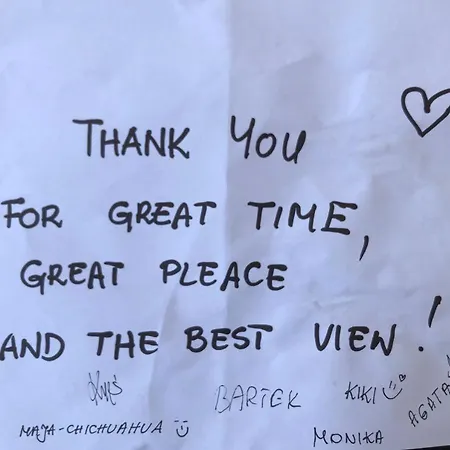 THANK YOU
FOR GREAT TIME,
GREAT PLEACE
AND THE BEST VIEW!
BARTEK KIKI AGATA
MAJA-CHICHUAHUA MONIKA